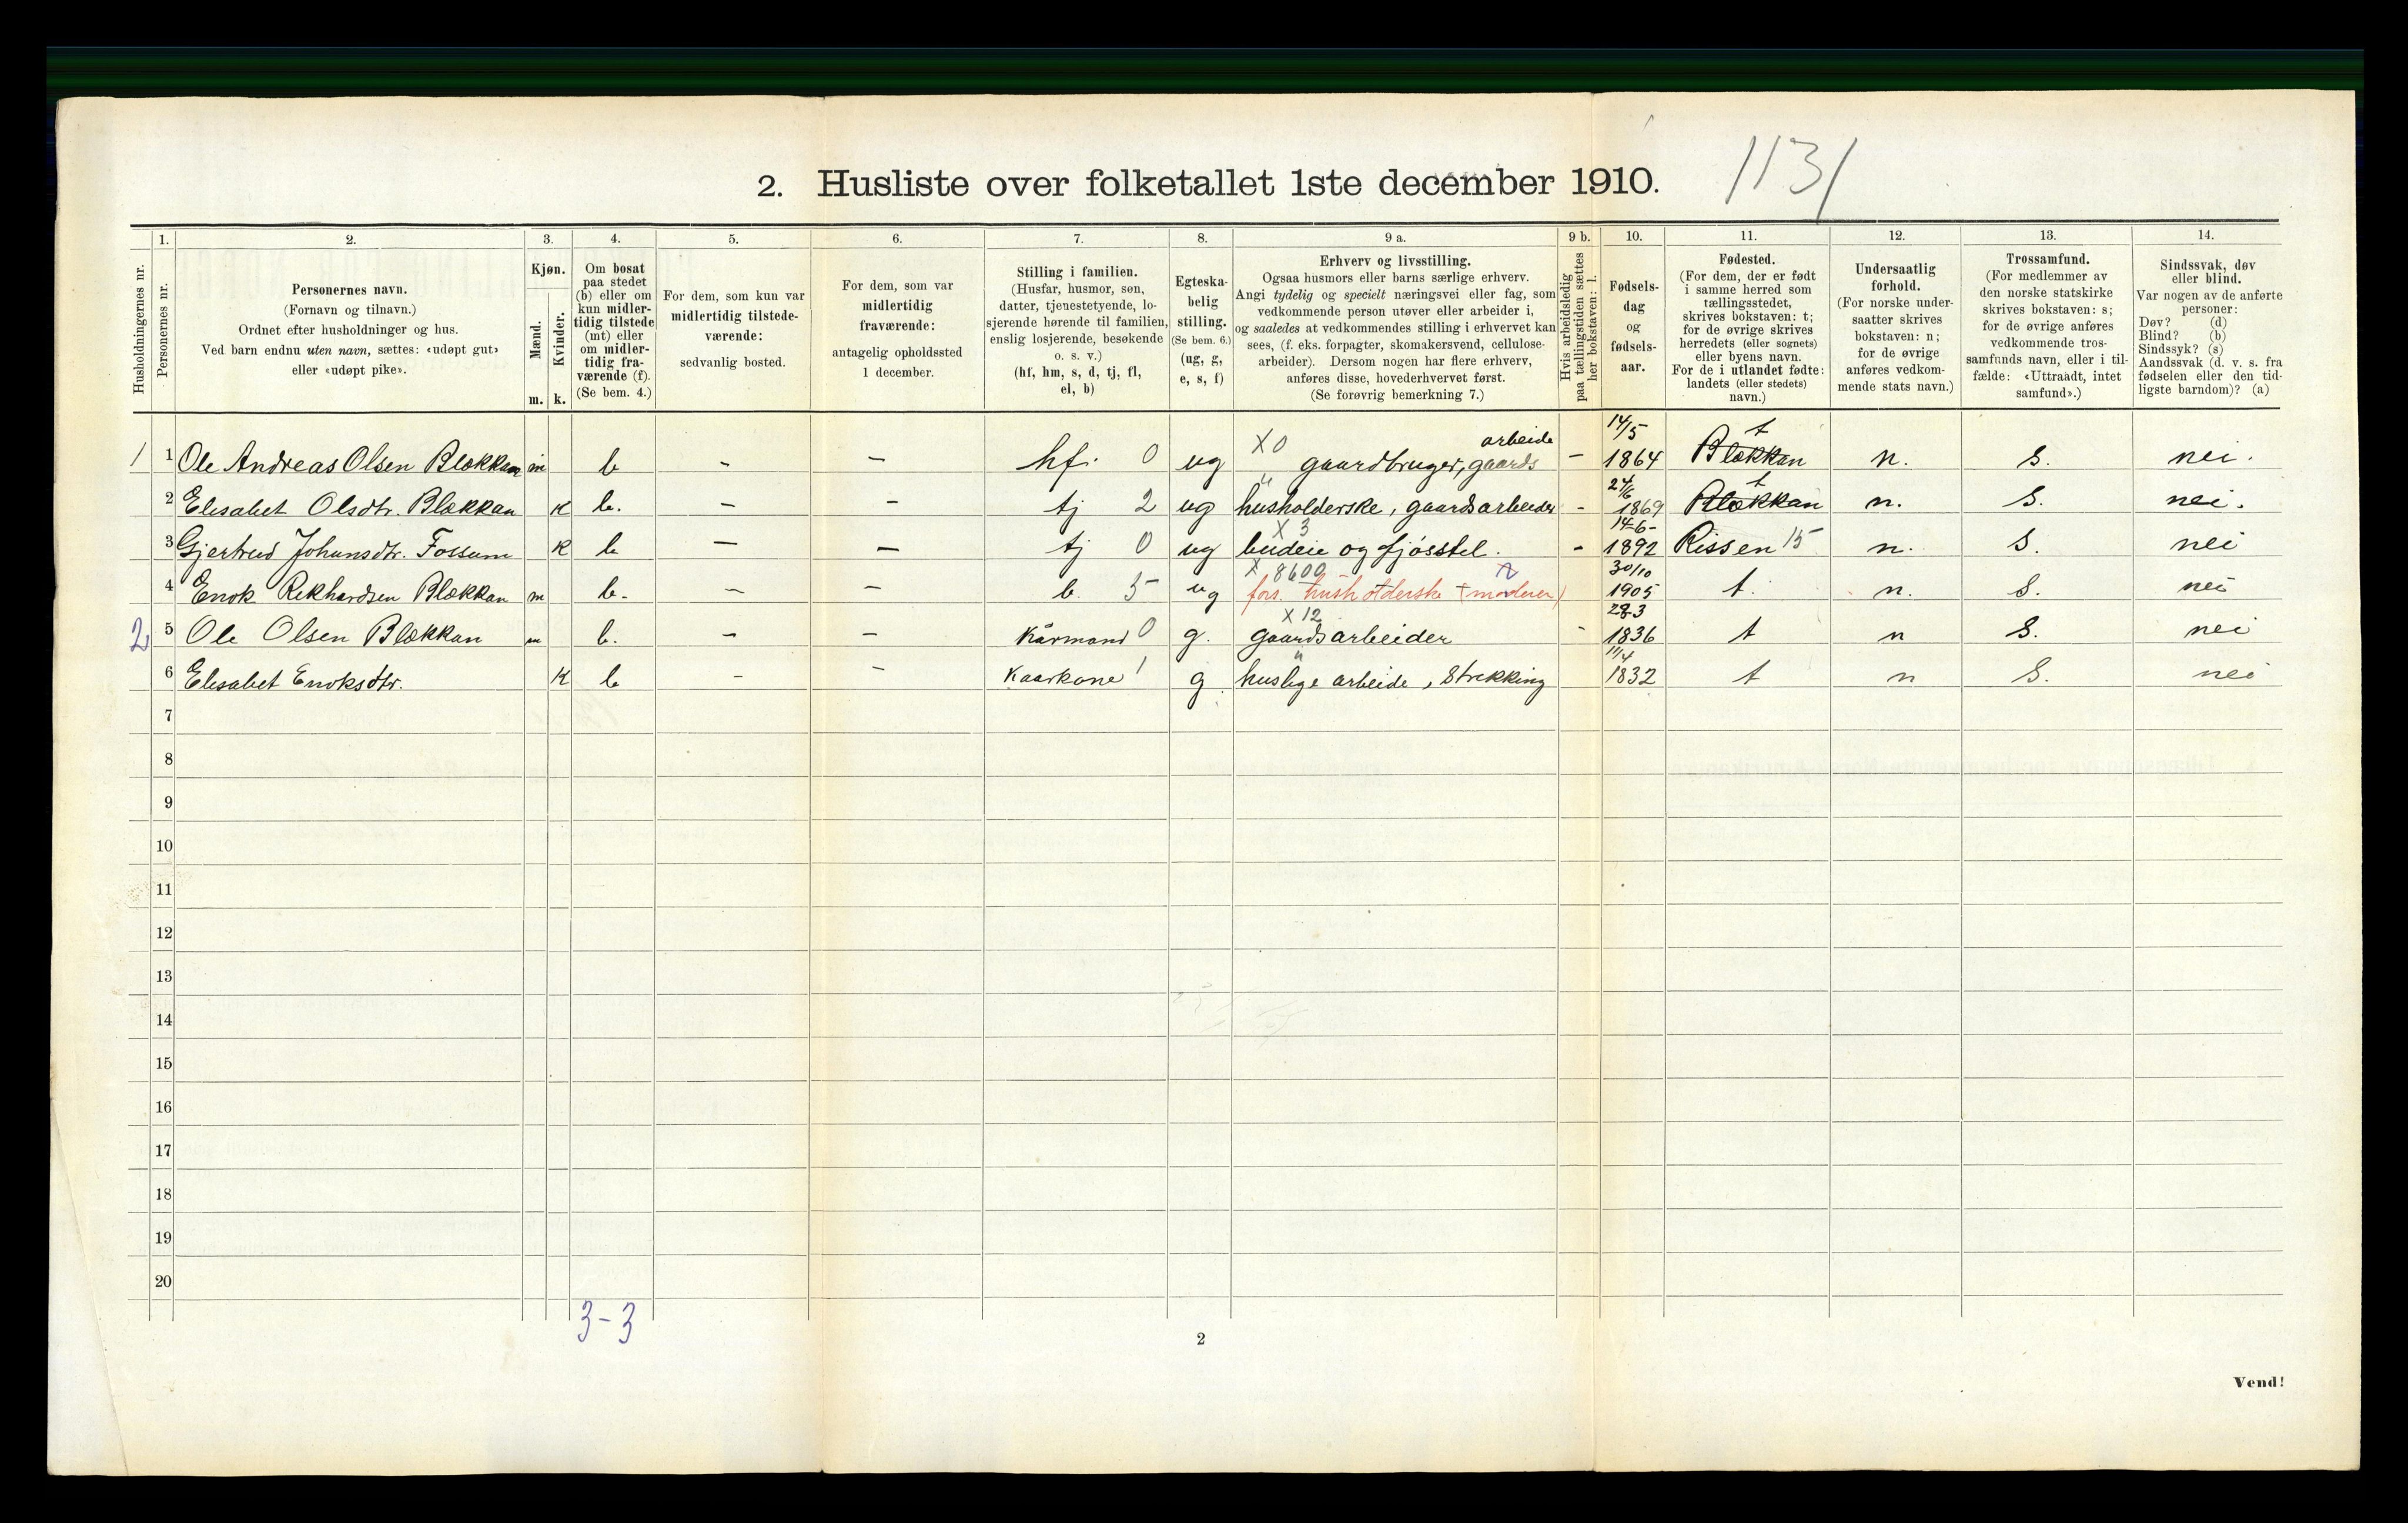 2. Husliste over folketallet 1ste december 1910.
1131
Husholdningernes nr.
1. Personernes nr.
2. Personernes navn. (Fornavn og tilnavn.) Ordnet efter husholdninger og hus. Ved barn endnu uten navn, sættes: «udøpt gut» eller «udøpt pike».
3. Kjøn. Mænd. m. Kvinder. k.
4. Om bosat paa stedet (b) eller om kun midlertidig tilstede (mt) eller om midlertidig fraværende (f). (Se bem. 4.)
5. For dem, som kun var midlertidig tilstedeværende: sedvanlig bosted.
6. For dem, som var midlertidig fraværende: antagelig opholdssted 1 december.
7. Stilling i familien. (Husfar, husmor, søn, datter, tjenestetyende, losjerende hørende til familien, enslig losjerende, besøkende o. s. v.) (hf, hm, s, d, tj, fl, el, b)
8. Egteskabelig stilling. (Se bem. 6.) (ug, g, e, s, f)
9 a. Erhverv og livsstilling. Ogsaa husmors eller barns særlige erhverv. Angi tydelig og specielt næringsvei eller fag, som vedkommende person utøver eller arbeider i, og saaledes at vedkommendes stilling i erhvervet kan sees, (f. eks. forpagter, skomakersvend, cellulosearbeider). Dersom nogen har flere erhverv, anføres disse, hovederhvervet først. (Se forøvrig bemerkning 7.)
9 b. Hvis arbeidsledig paa tællingstiden sættes her bokstaven: l.
10. Fødselsdag og fødselsaar.
11. Fødested. (For dem, der er født i samme herred som tællingsstedet, skrives bokstaven: t; for de øvrige skrives herredets (eller sognets) eller byens navn. For de i utlandet fødte: landets (eller stedets) navn.)
12. Undersaatlig forhold. (For norske undersaatter skrives bokstaven: n; for de øvrige anføres vedkommende stats navn.)
13. Trossamfund. (For medlemmer av den norske statskirke skrives bokstaven: s; for de øvrige anføres vedkommende trossamfunds navn, eller i tilfælde: «Uttraadt, intet samfund».)
14. Sindssvak, døv eller blind. Var nogen av de anførte personer: Døv? (d) Blind? (b) Sindssyk? (s) Aandssvak (d. v. s. fra fødselen eller den tidligste barndom)? (a)
1 1 Ole Andreas Olsen Blækkan m b - - hf. 0 ug X0 gaardbruger, gaards arbeide - 14/5 1864 Blækkan t n. S. nei.
2 Elisabet Olsdtr. Blækkan K b. - - tj 2 ug " husholderske, gaardsarbeider - 24/6 1869 Blækkan t n. S. nei.
3 Gjertrud Johansdtr. Fossum K b - - tj 0 ug X 3 budeie og fjøsstel. - 14-6- 1892 Rissen 15 n. S. nei
4 Enok Rikhardsen Blækkan m b. - - b. 5 ug X 8600 fors. husholderske (moderen) 30/10 1905 t. n. S. nei
2 5 Ole Olsen Blækkan m b. - - Kårmand 0 g. X 12 gaardsarbeider - 28-3 1836 t n S. nei
6 Elisabet Enoksdtr. K b - - Kaarkone 1 g " huslige arbeide, Strikking 11/4 1832 t n S. nei
7
8
9
10
11
12
13
14
15
16
17
18
19
20
3-3
2
Vend!